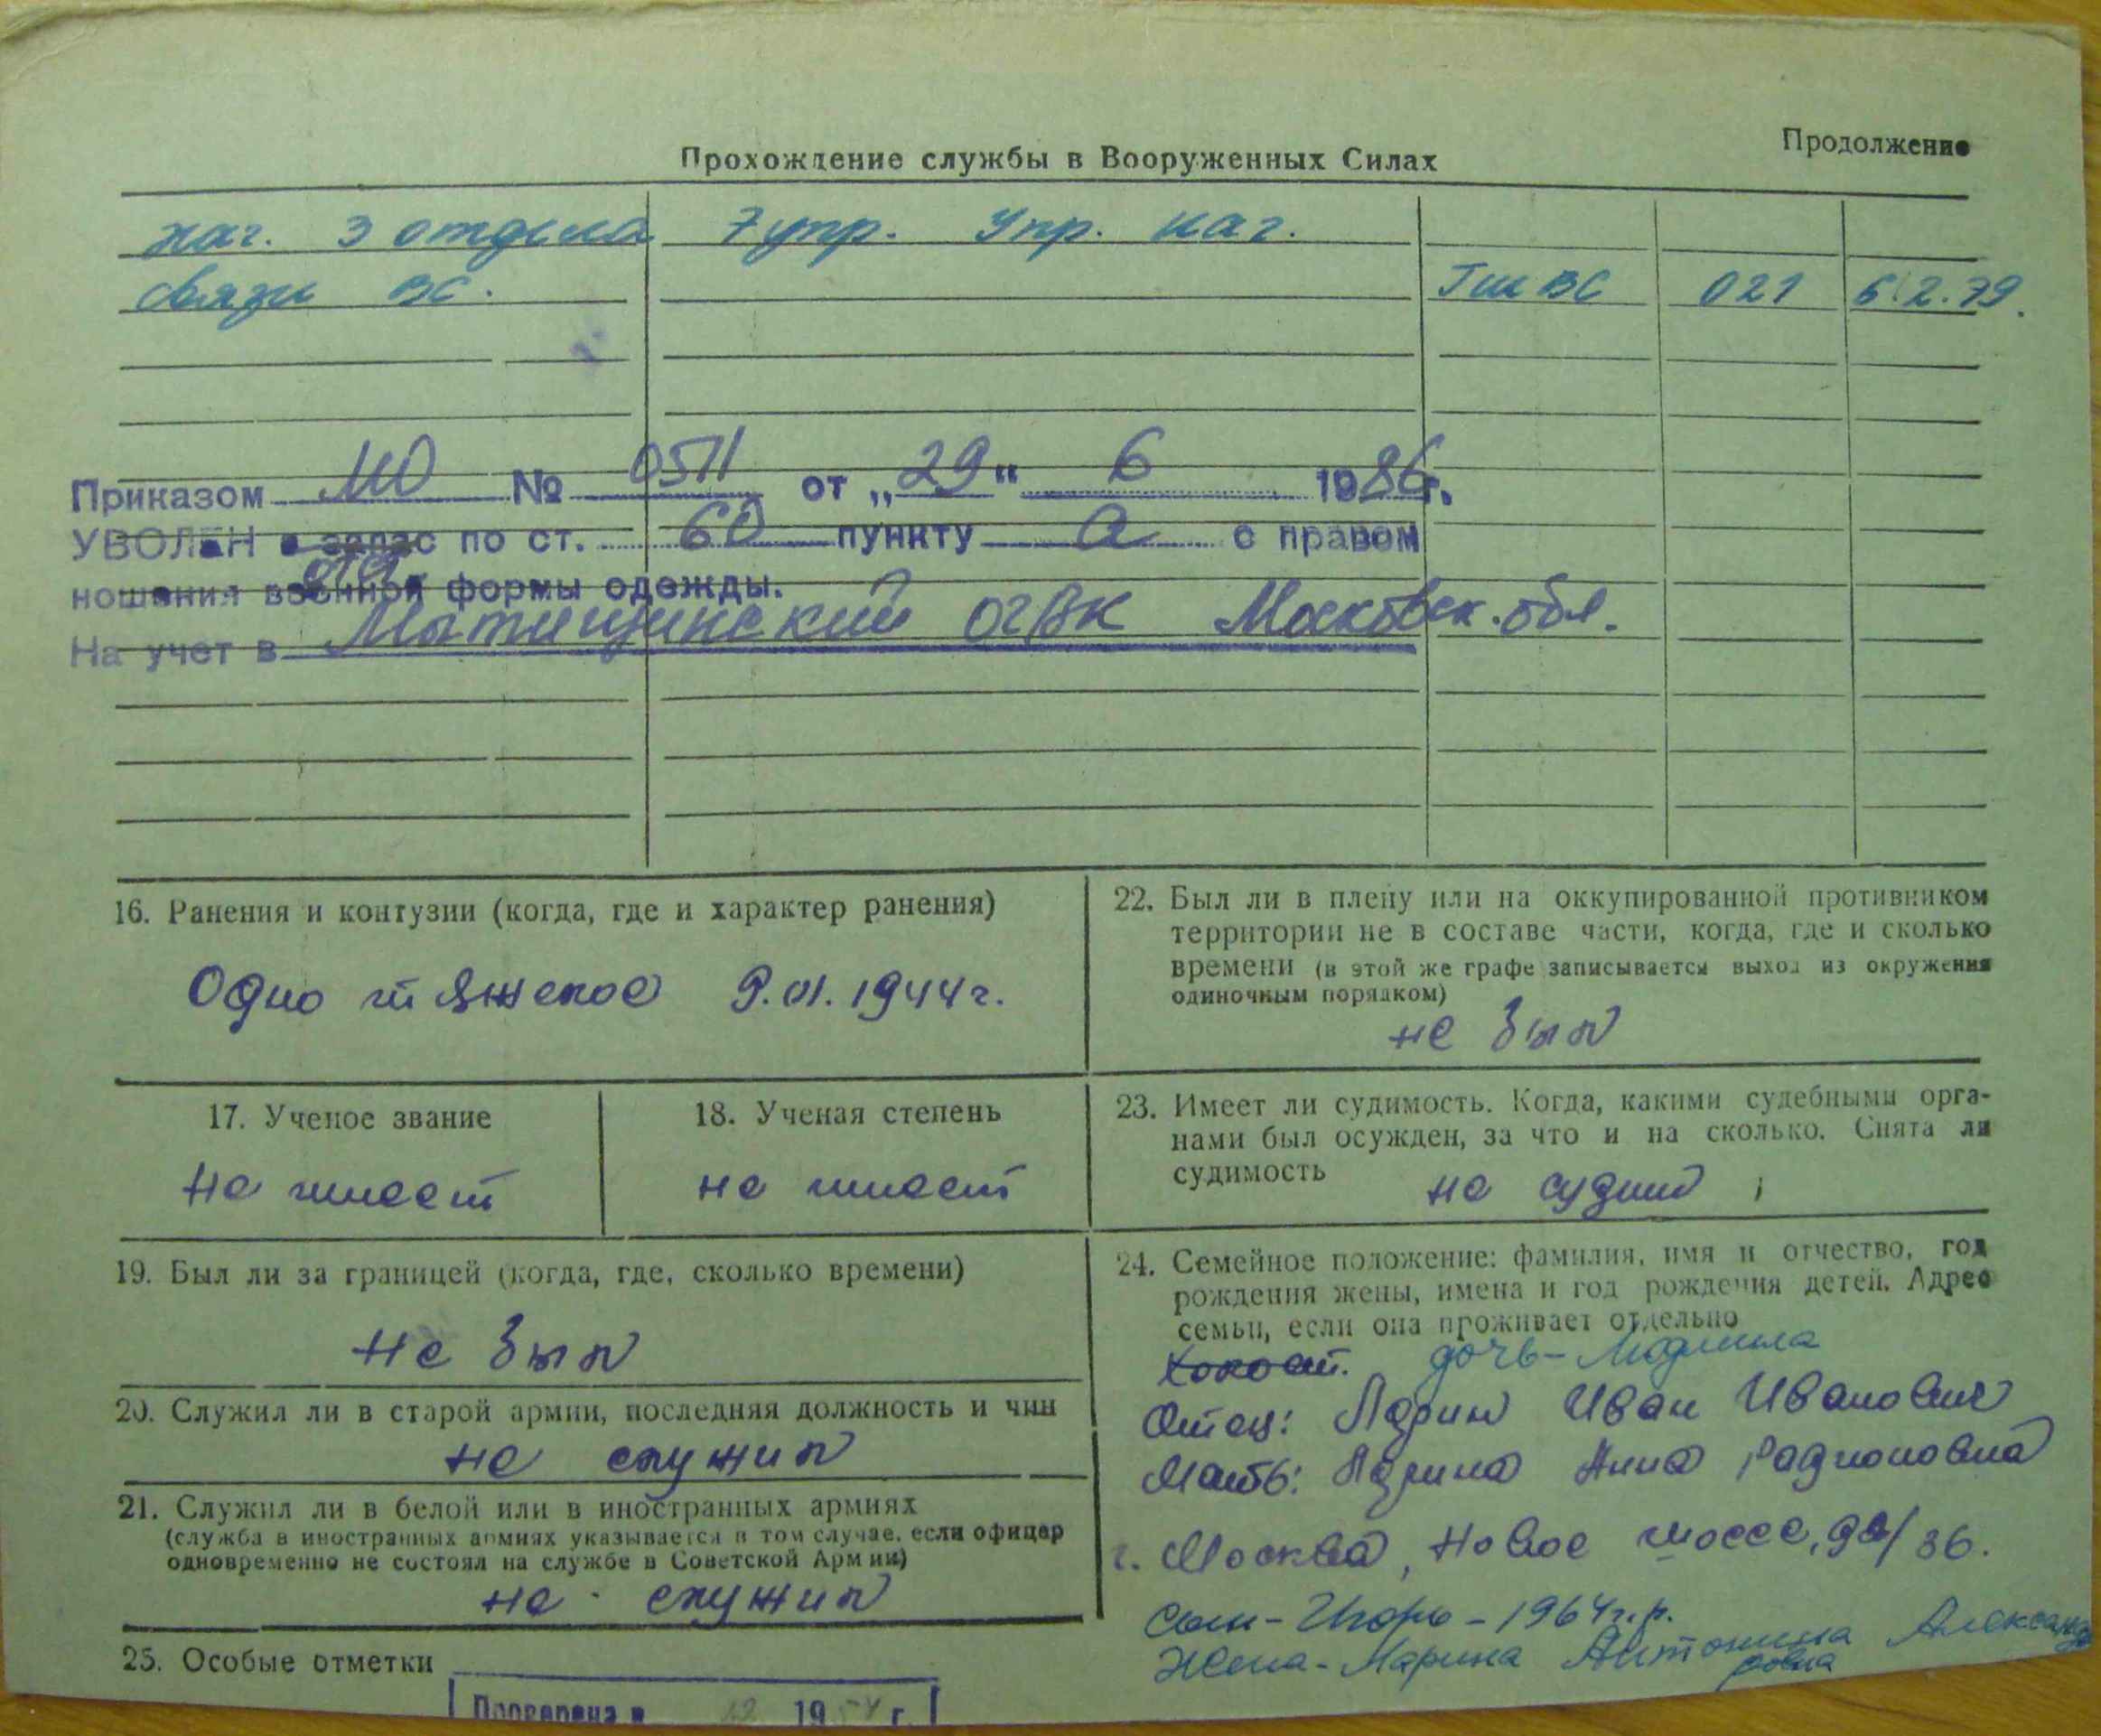 Продолжение
Прохождение службы в Вооруженных Силах
нач. 3 отдела 7 упр. Упр. нач.
связи ВС. ГШ ВС 021 6.2.79.
Приказом МО № 0511 от „29“ 6 1986г.
УВОЛЕН в запас по ст. 60 пункту а с правом
ношения военной формы одежды.
На учет в Матищинский ОГВК Московск. обл.
16. Ранения и контузии (когда, где и характер ранения)
Одно тяжелое 9.01.1944г.
17. Ученое звание
не имеет
18. Ученая степень
не имеет
19. Был ли за границей (когда, где, сколько времени)
Не был
20. Служил ли в старой армии, последняя должность и чин
не служил
21. Служил ли в белой или в иностранных армиях
(служба в иностранных армиях указывается в том случае, если офицер
одновременно не состоял на службе в Советской Армии)
не служил
25. Особые отметки
Проверена в 12 1954 г.
22. Был ли в плену или на оккупированной противником
территории не в составе части, когда, где и сколько
времени (в этой же графе записывается выход из окружения
одиночным порядком)
не был
23. Имеет ли судимость. Когда, какими судебными орга-
нами был осужден, за что и на сколько. Снята ли
судимость не судим
24. Семейное положение: фамилия, имя и отчество, год
рождения жены, имена и год рождения детей. Адрес
семьи, если она проживает отдельно
Холост. дочь - Людмила
Отец: Ларин Иван Иванович
Мать: Ларина Анна Радионовна
г. Москва, Новое шоссе, /36.
Сын - Игорь - 1964 г.р.
Жена - Ларина Антонина Александ
ровна